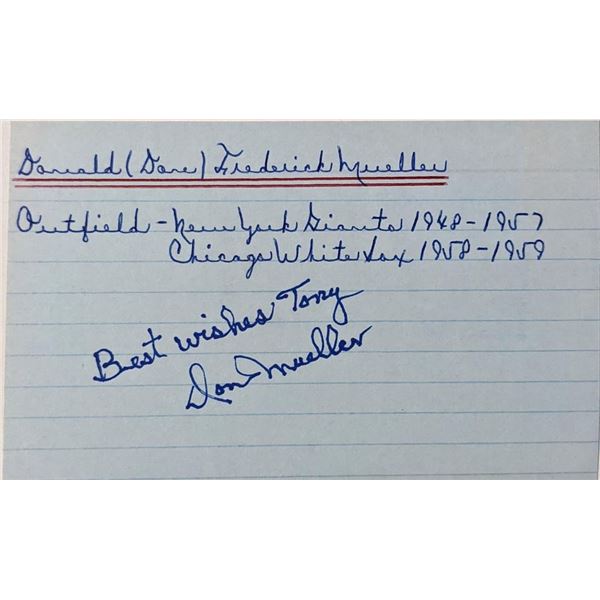 Donald (Done) Frederick Mueller
Outfield - New York Giants 1948 - 1957
Chicago White Sox 1958 - 1959
Best wishes Tony
Don Mueller